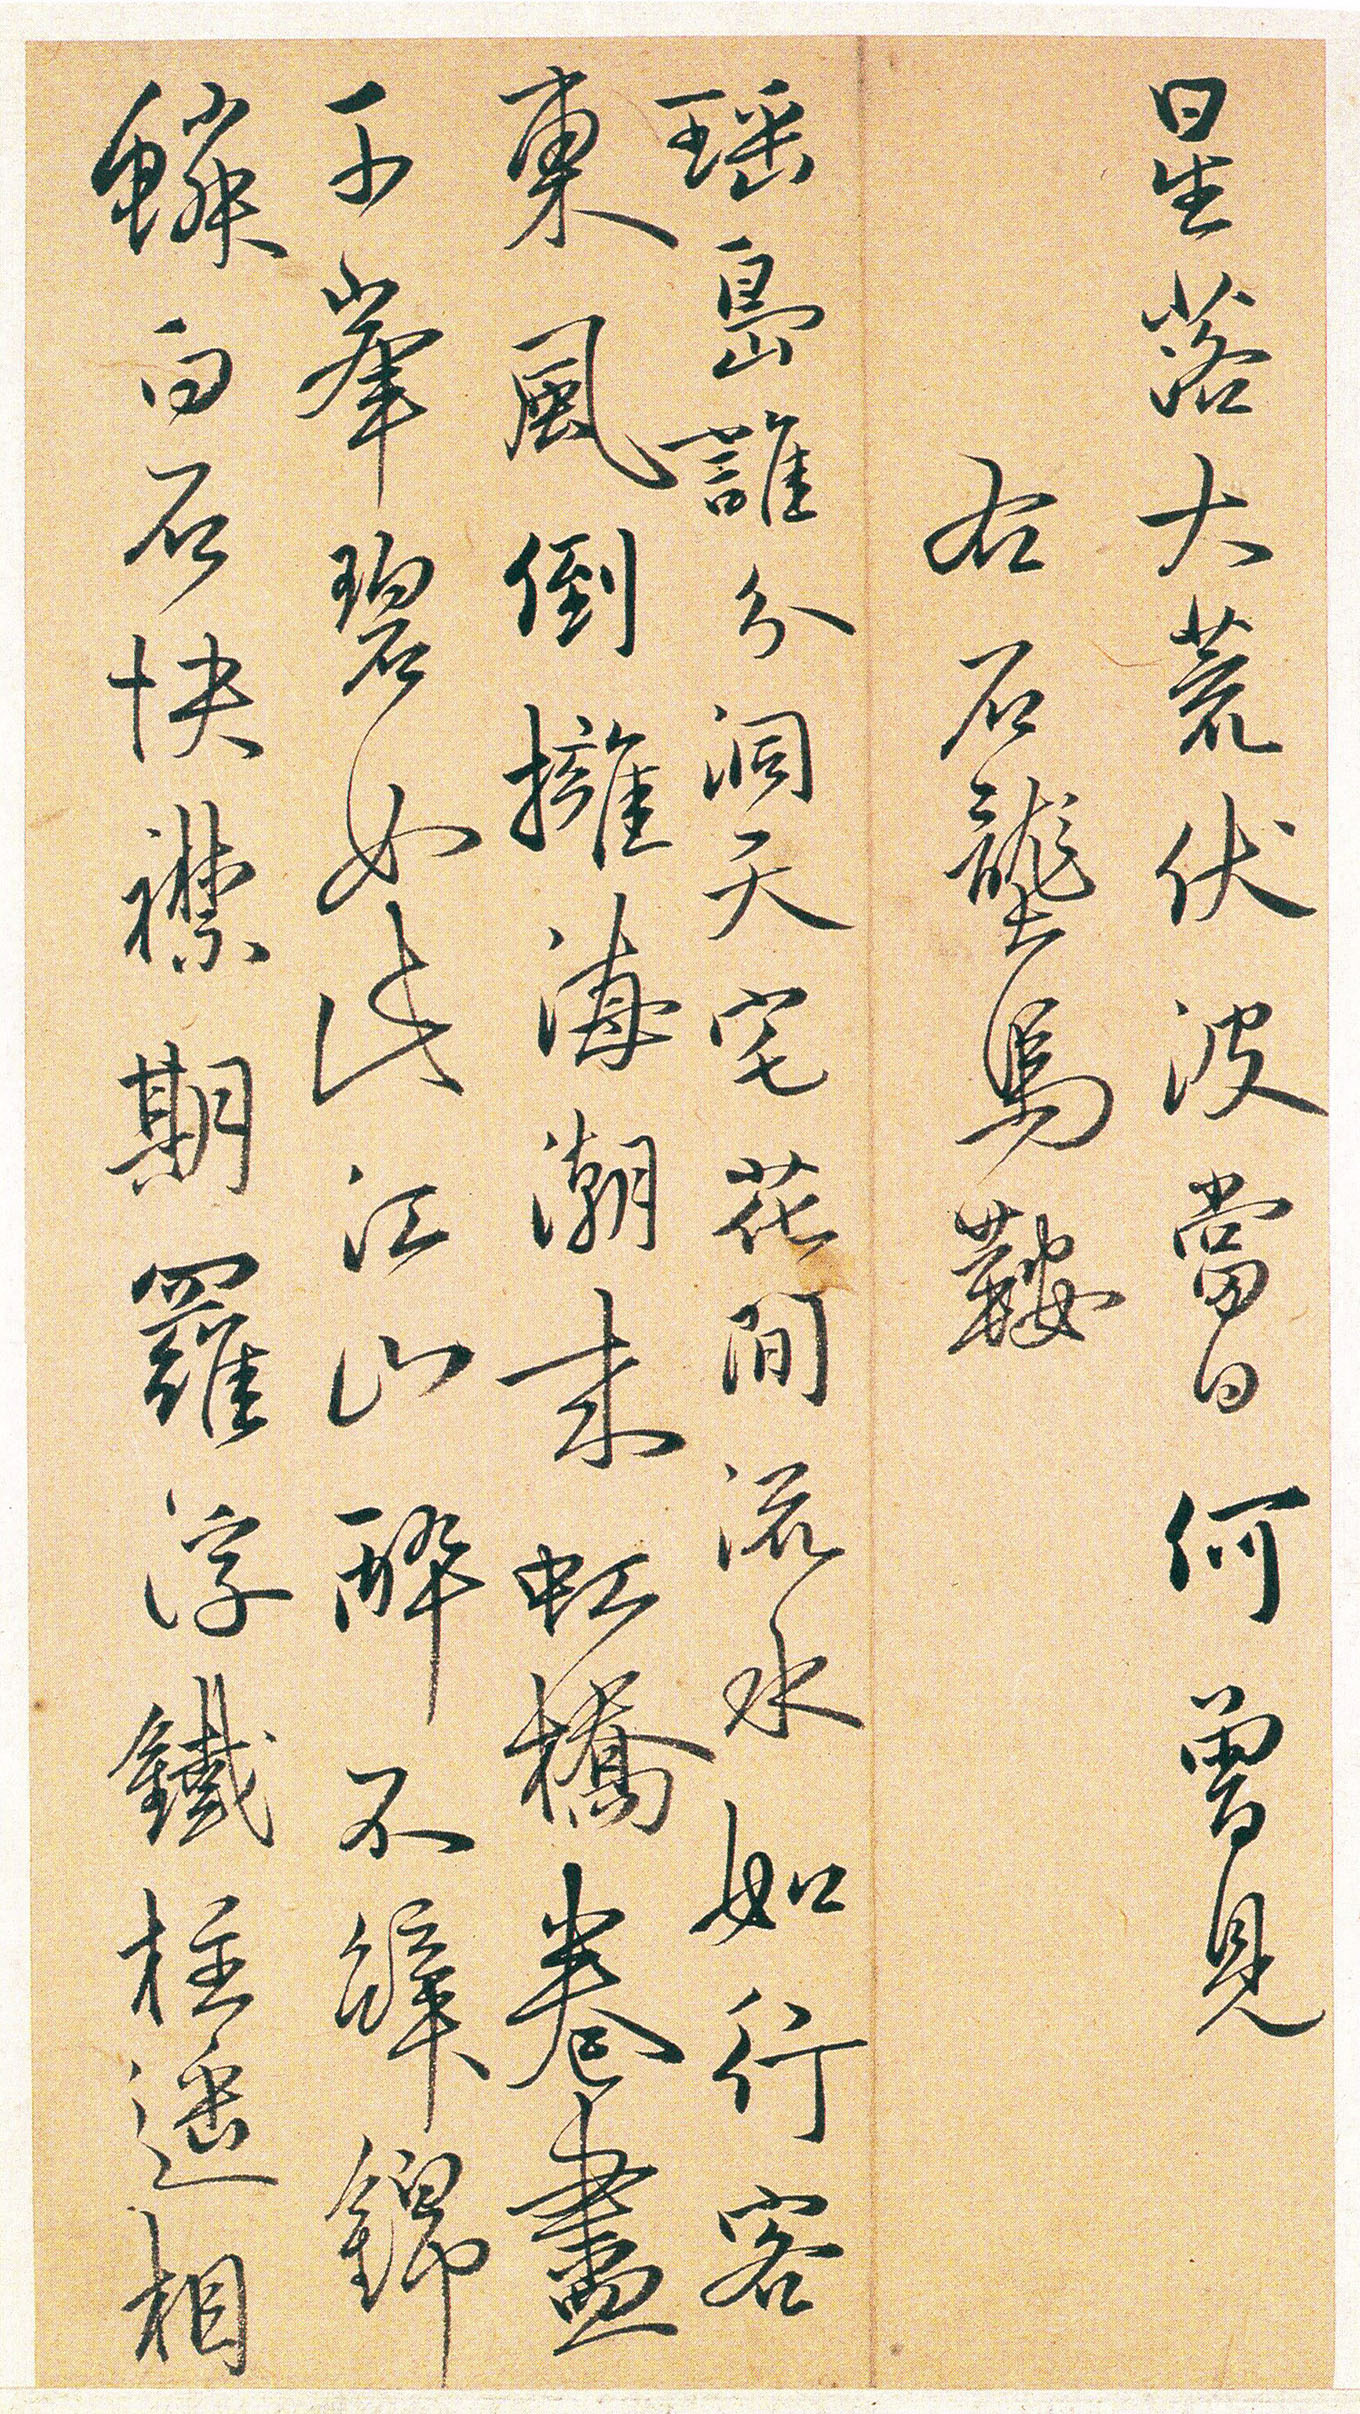 星落大荒伏波當日何曾見
右石壟馬鞍
瑶島誰分洞天宅花間流水如行客
東風倒擁海潮来虹橋卷盡
千峯碧如此江山醉不辭錦
鱗白石快襟期羅浮鐵柱遥相